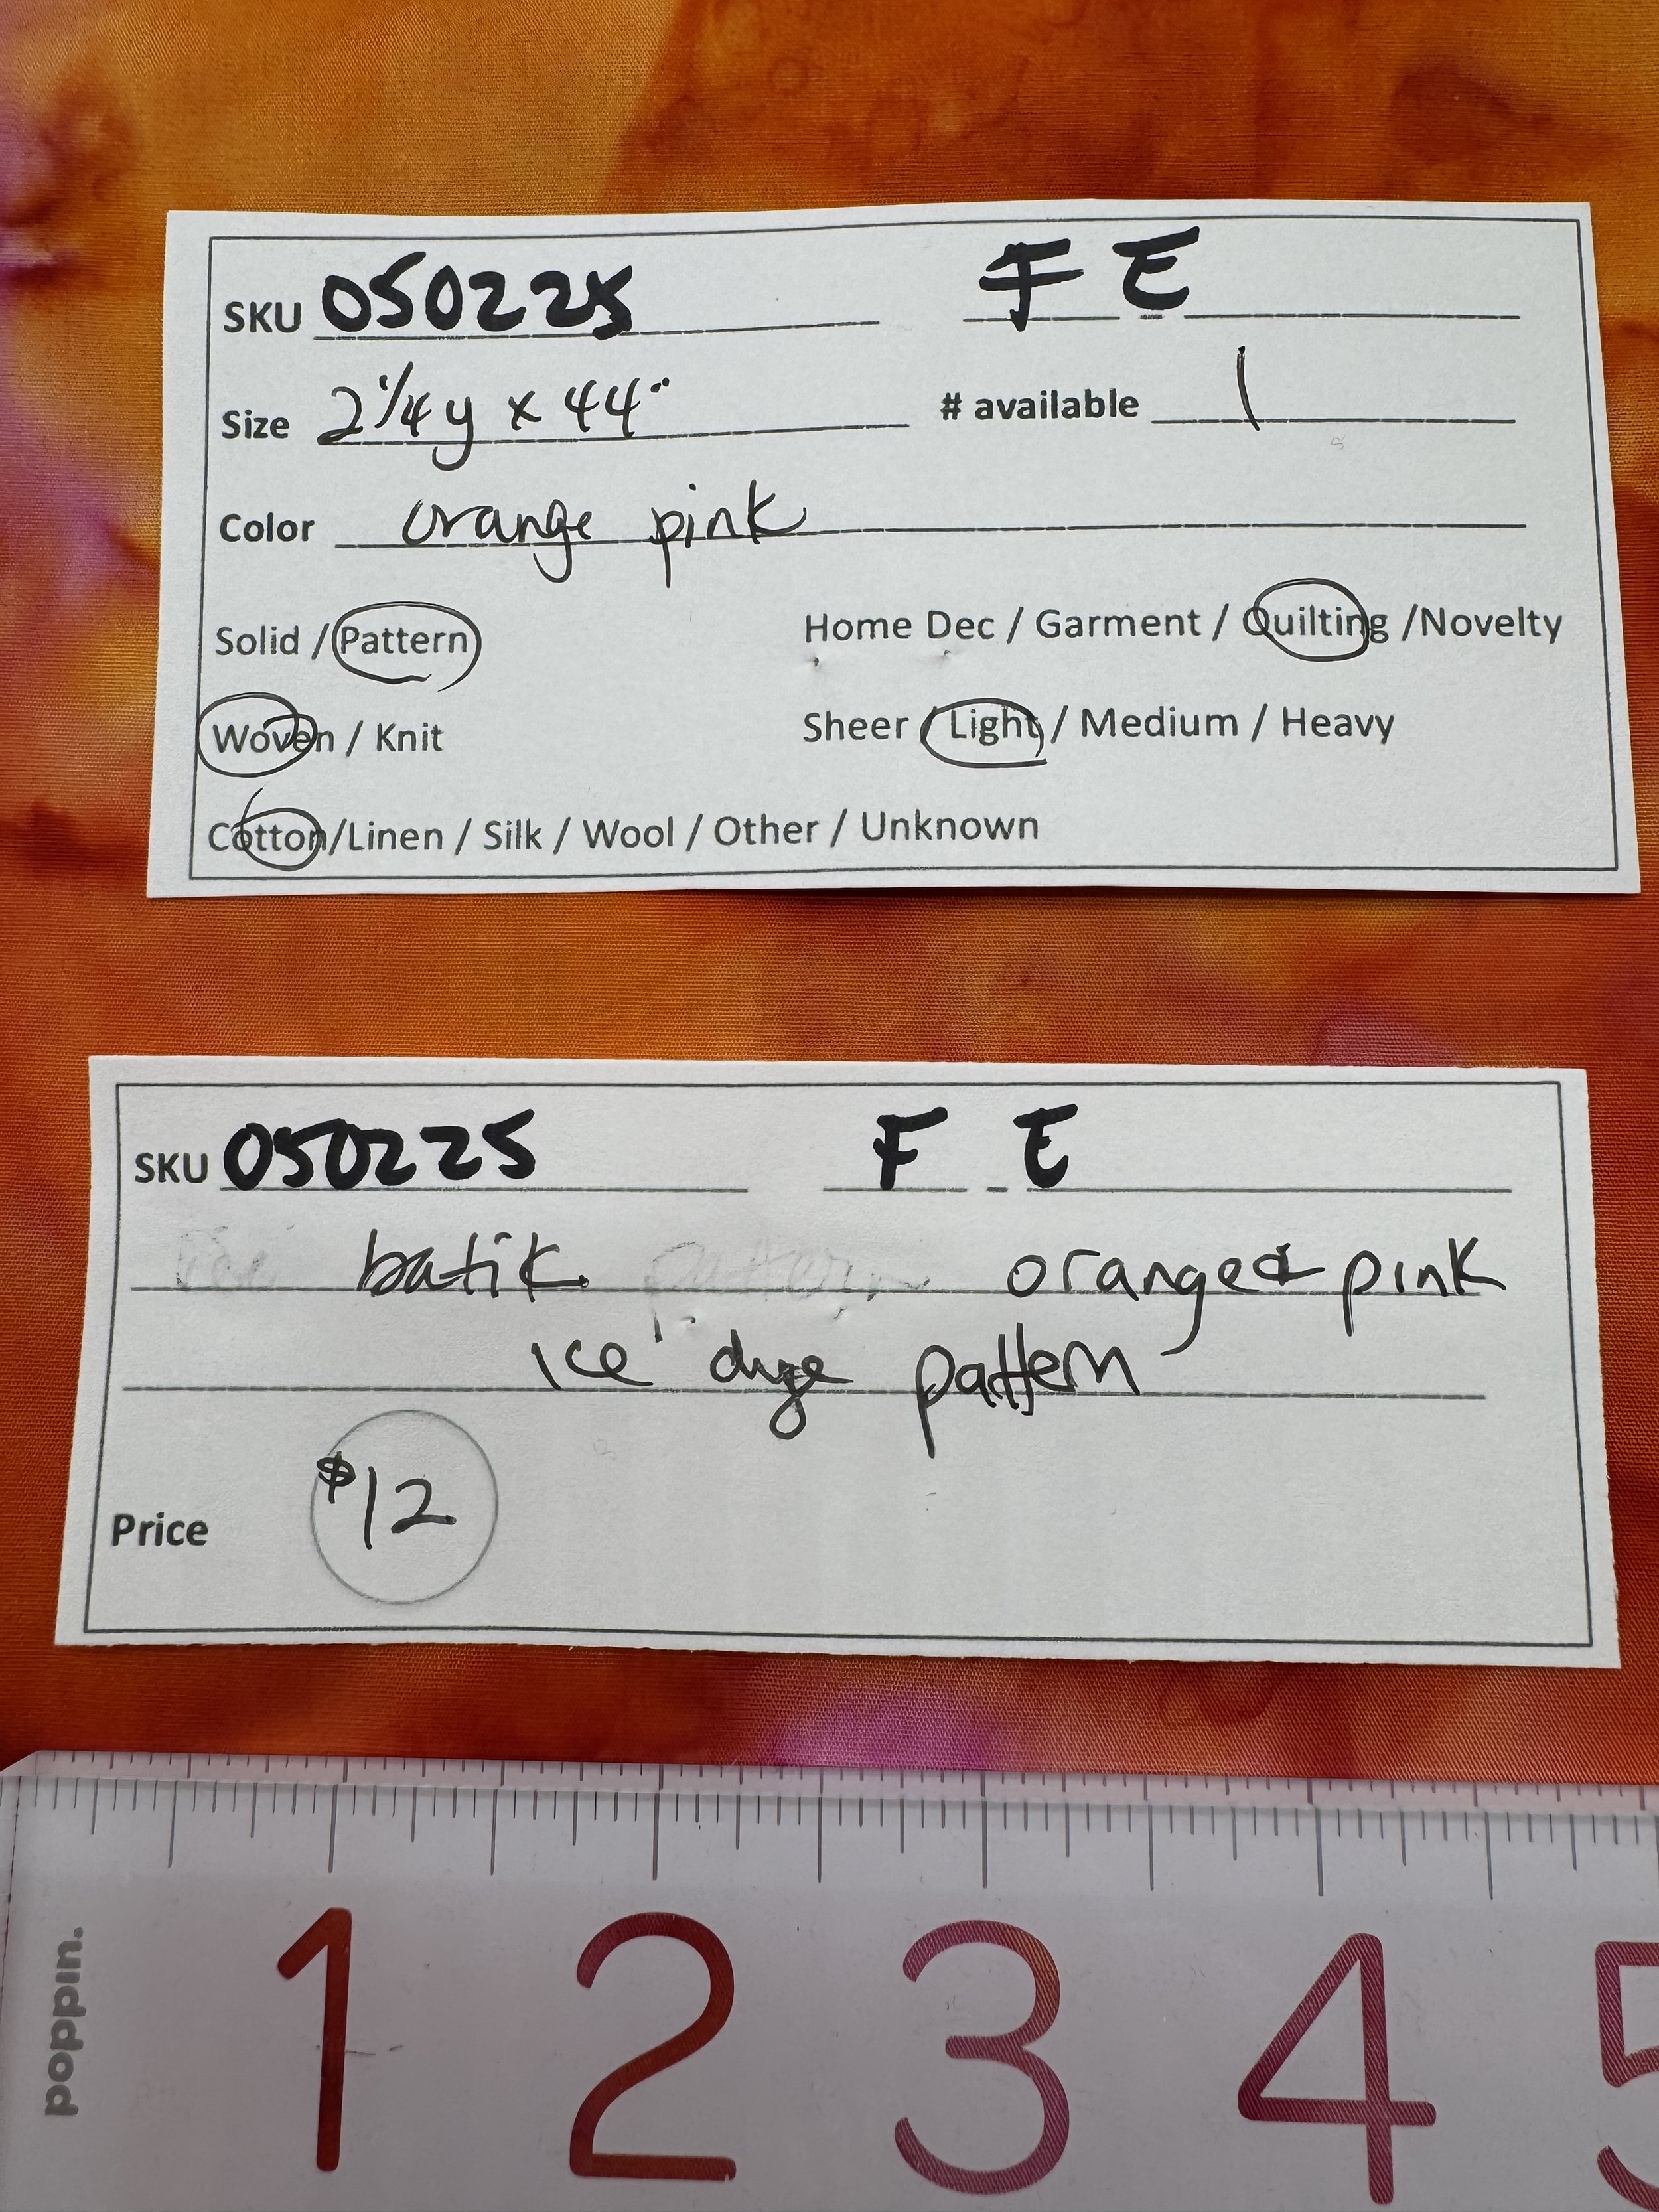 SKU 050225 F E
Size 2 1/4 y x 44" # available 1
Color orange pink
Solid / Pattern Home Dec / Garment / Quilting /Novelty
Woven / Knit Sheer / Light / Medium / Heavy
Cotton/Linen / Silk / Wool / Other / Unknown
SKU 050225 F E
batik pattern orange & pink
ice dye pattern
Price $12
poppin.
1 2 3 4 5